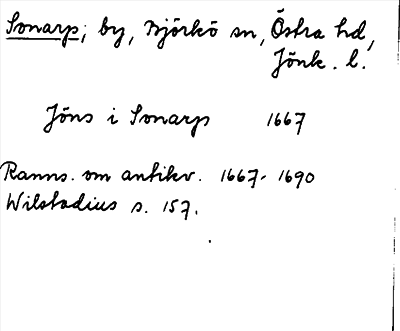 Sonarp; by, Björkö sn, Östra hd,
Jönk. l.
Jöns i Sonarp 1667
Ranns. om antikv. 1667-1690
Wilstadius s. 157.